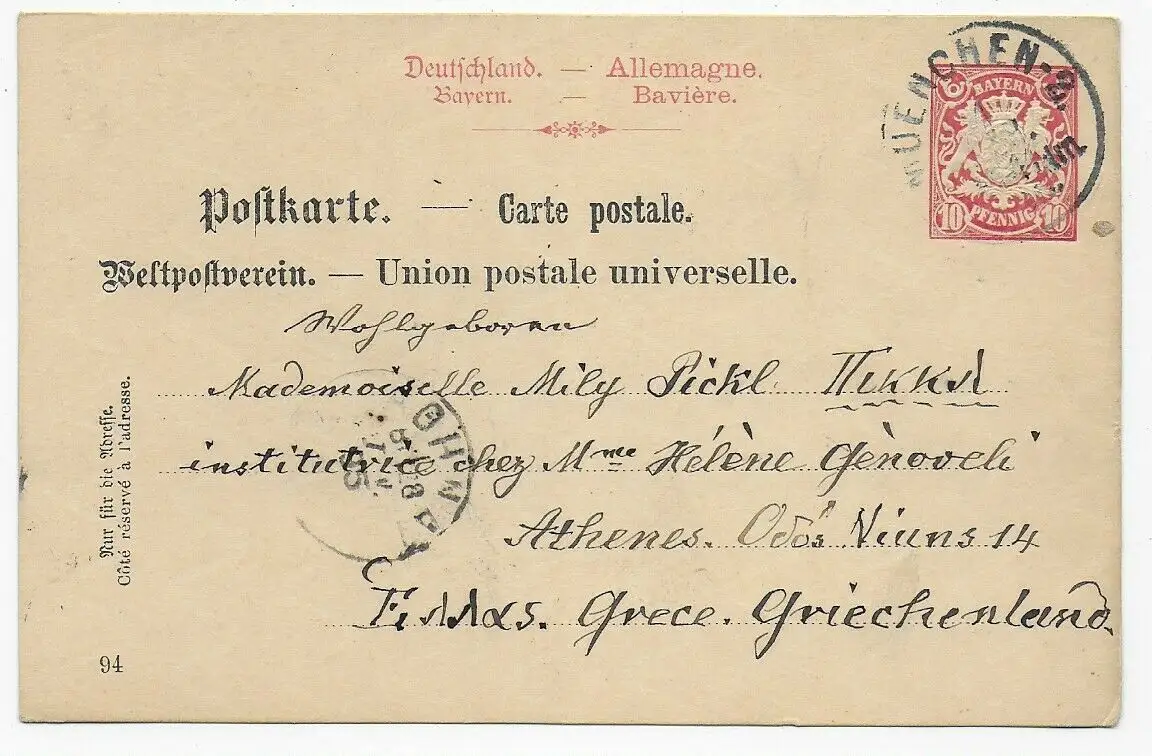 Deutschland. — Allemagne.
Bayern. — Bavière.
MUENCHEN-2.
BAYERN
10 PFENNIG 10
Postkarte. — Carte postale.
Weltpostverein. — Union postale universelle.
Wohlgeboren
Mademoiselle Mily Pickl Πικκλ
institutrice chez Mme Hélène Gènoveli
Athenes. Odós 14
Ελλας. Grece. Griechenland.
Nur für die Adresse.
Côté réservé à l'adresse.
94